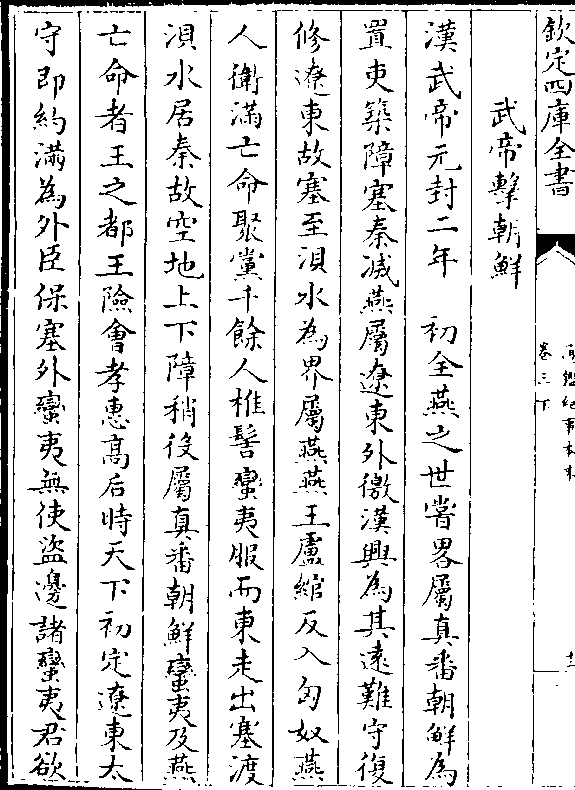 欽定四庫全書
武帝擊朝鮮
漢武帝元封二年 初全燕之世嘗畧屬真番朝鮮為
置吏築障塞秦滅燕屬遼東外徼漢興為其遠難守復
修遼東故塞至浿水為界屬燕燕王盧綰反入匈奴燕
人衛滿亡命聚黨千餘人椎髻蠻夷服而東走出塞渡
浿水居秦故空地上下障稍役屬真番朝鮮蠻夷及燕
亡命者王之都王險會孝惠高后時天下初定遼東太
守即約滿為外臣保塞外蠻夷無使盜邊諸蠻夷君欲
鑑紀事本末
卷三下